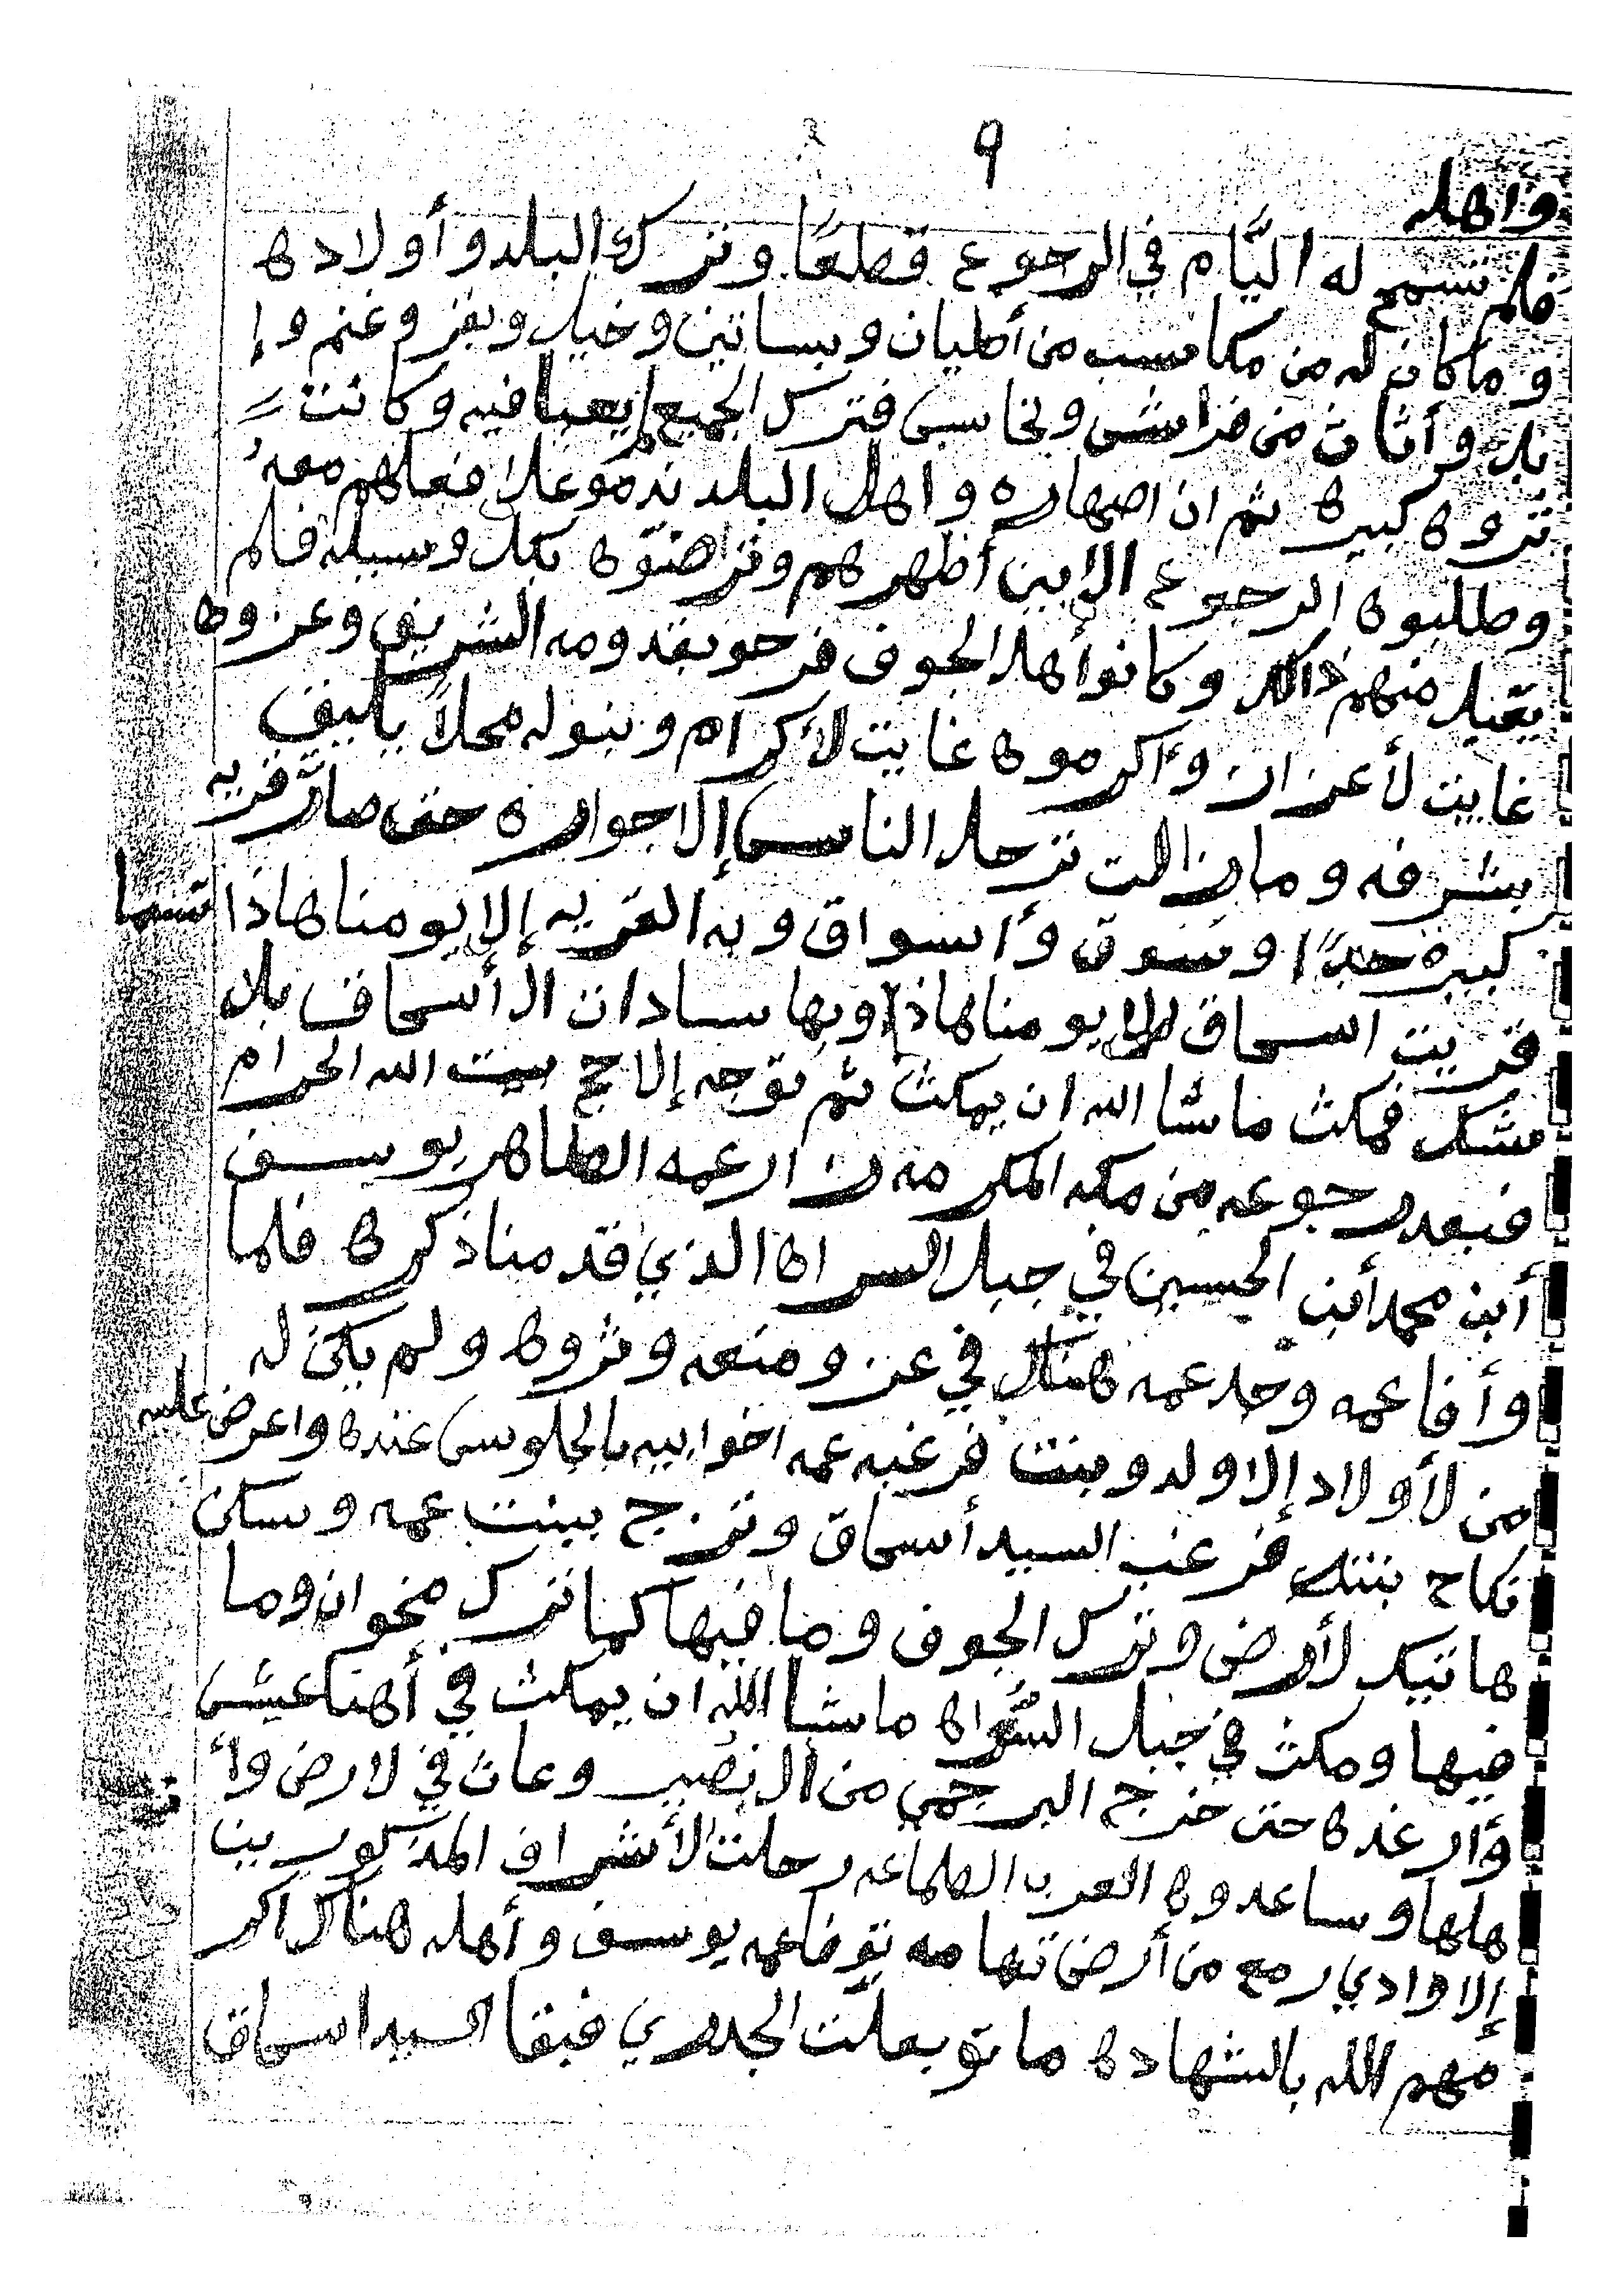 ٩
واهله
فلم تسمح له اليّام في الرجوع قطعًا وترك البلد وأولاده
وما كان له من مكاسب من أطيان وبساتين وخيل وبقر وغنم وإ
بل وأثاث من فراش ونحاس فترك الجميع لم يعبا فيه وكانت
ثروه كبيره ثم ان اصهاره واهل البلد ندمو علا فعلهم معه
وطلبوه الرجوع الا بين أظهرهم وتراضوه بكل وسيله فلم
يقبل منهم ذالك وكانو أهل الجوف فرحو بقدومه الشريف وعزوه
غايت لأعزاز وأكرموه غايت لأكرام وبنو له محلاً يليق
بشرفه وما زالت ترحل الناس إلا جواره حتى صارت قريه
كبيره جدًا وسوق وأسواق وبه القريه إلا يومنا هاذا تسما
قريت اسحاق إلا يومنا هاذا وبها سادات ال أسحاق بلا
شك فمكث ماشا الله ان يمكث ثم توجه إلا حج بيت الله الحرام
فبعد رجوعه من مكه المكرمه زار عمه الطاهر يوسف
أبن محمد أبن الحسين في جبل السراه الذي قدمنا ذكره فلما
وأفا عمه وجد عمه هناك في عز ومنعه وثروه ولم يكن له
من لأولاد إلا ولد وبنت فرغبه عمه اخو ابيه بالجلوس عنده واعرض عليه
نكاح بنته فرغب السيد أسحاق وتزج ببنت عمه وسكن
هاتيك لأرض وترك الجوف وما فيها كما ترك وما
فيها ومكث في جبل السَّراه ماشا الله ان يمكث في أهنا عيش
وأرغده حتى خرج البرجمي من وعاث في لارض وأ
هلها وساعدوه العرب الطماعه رحلت الأشراف المذكورين
إلا وادي رمع من أرض تهامه توفا عمه يوسف وأهله هناك أكر
مهم الله بالشهاده ماتو بعلت الجدري فبقا السيد اسحاق